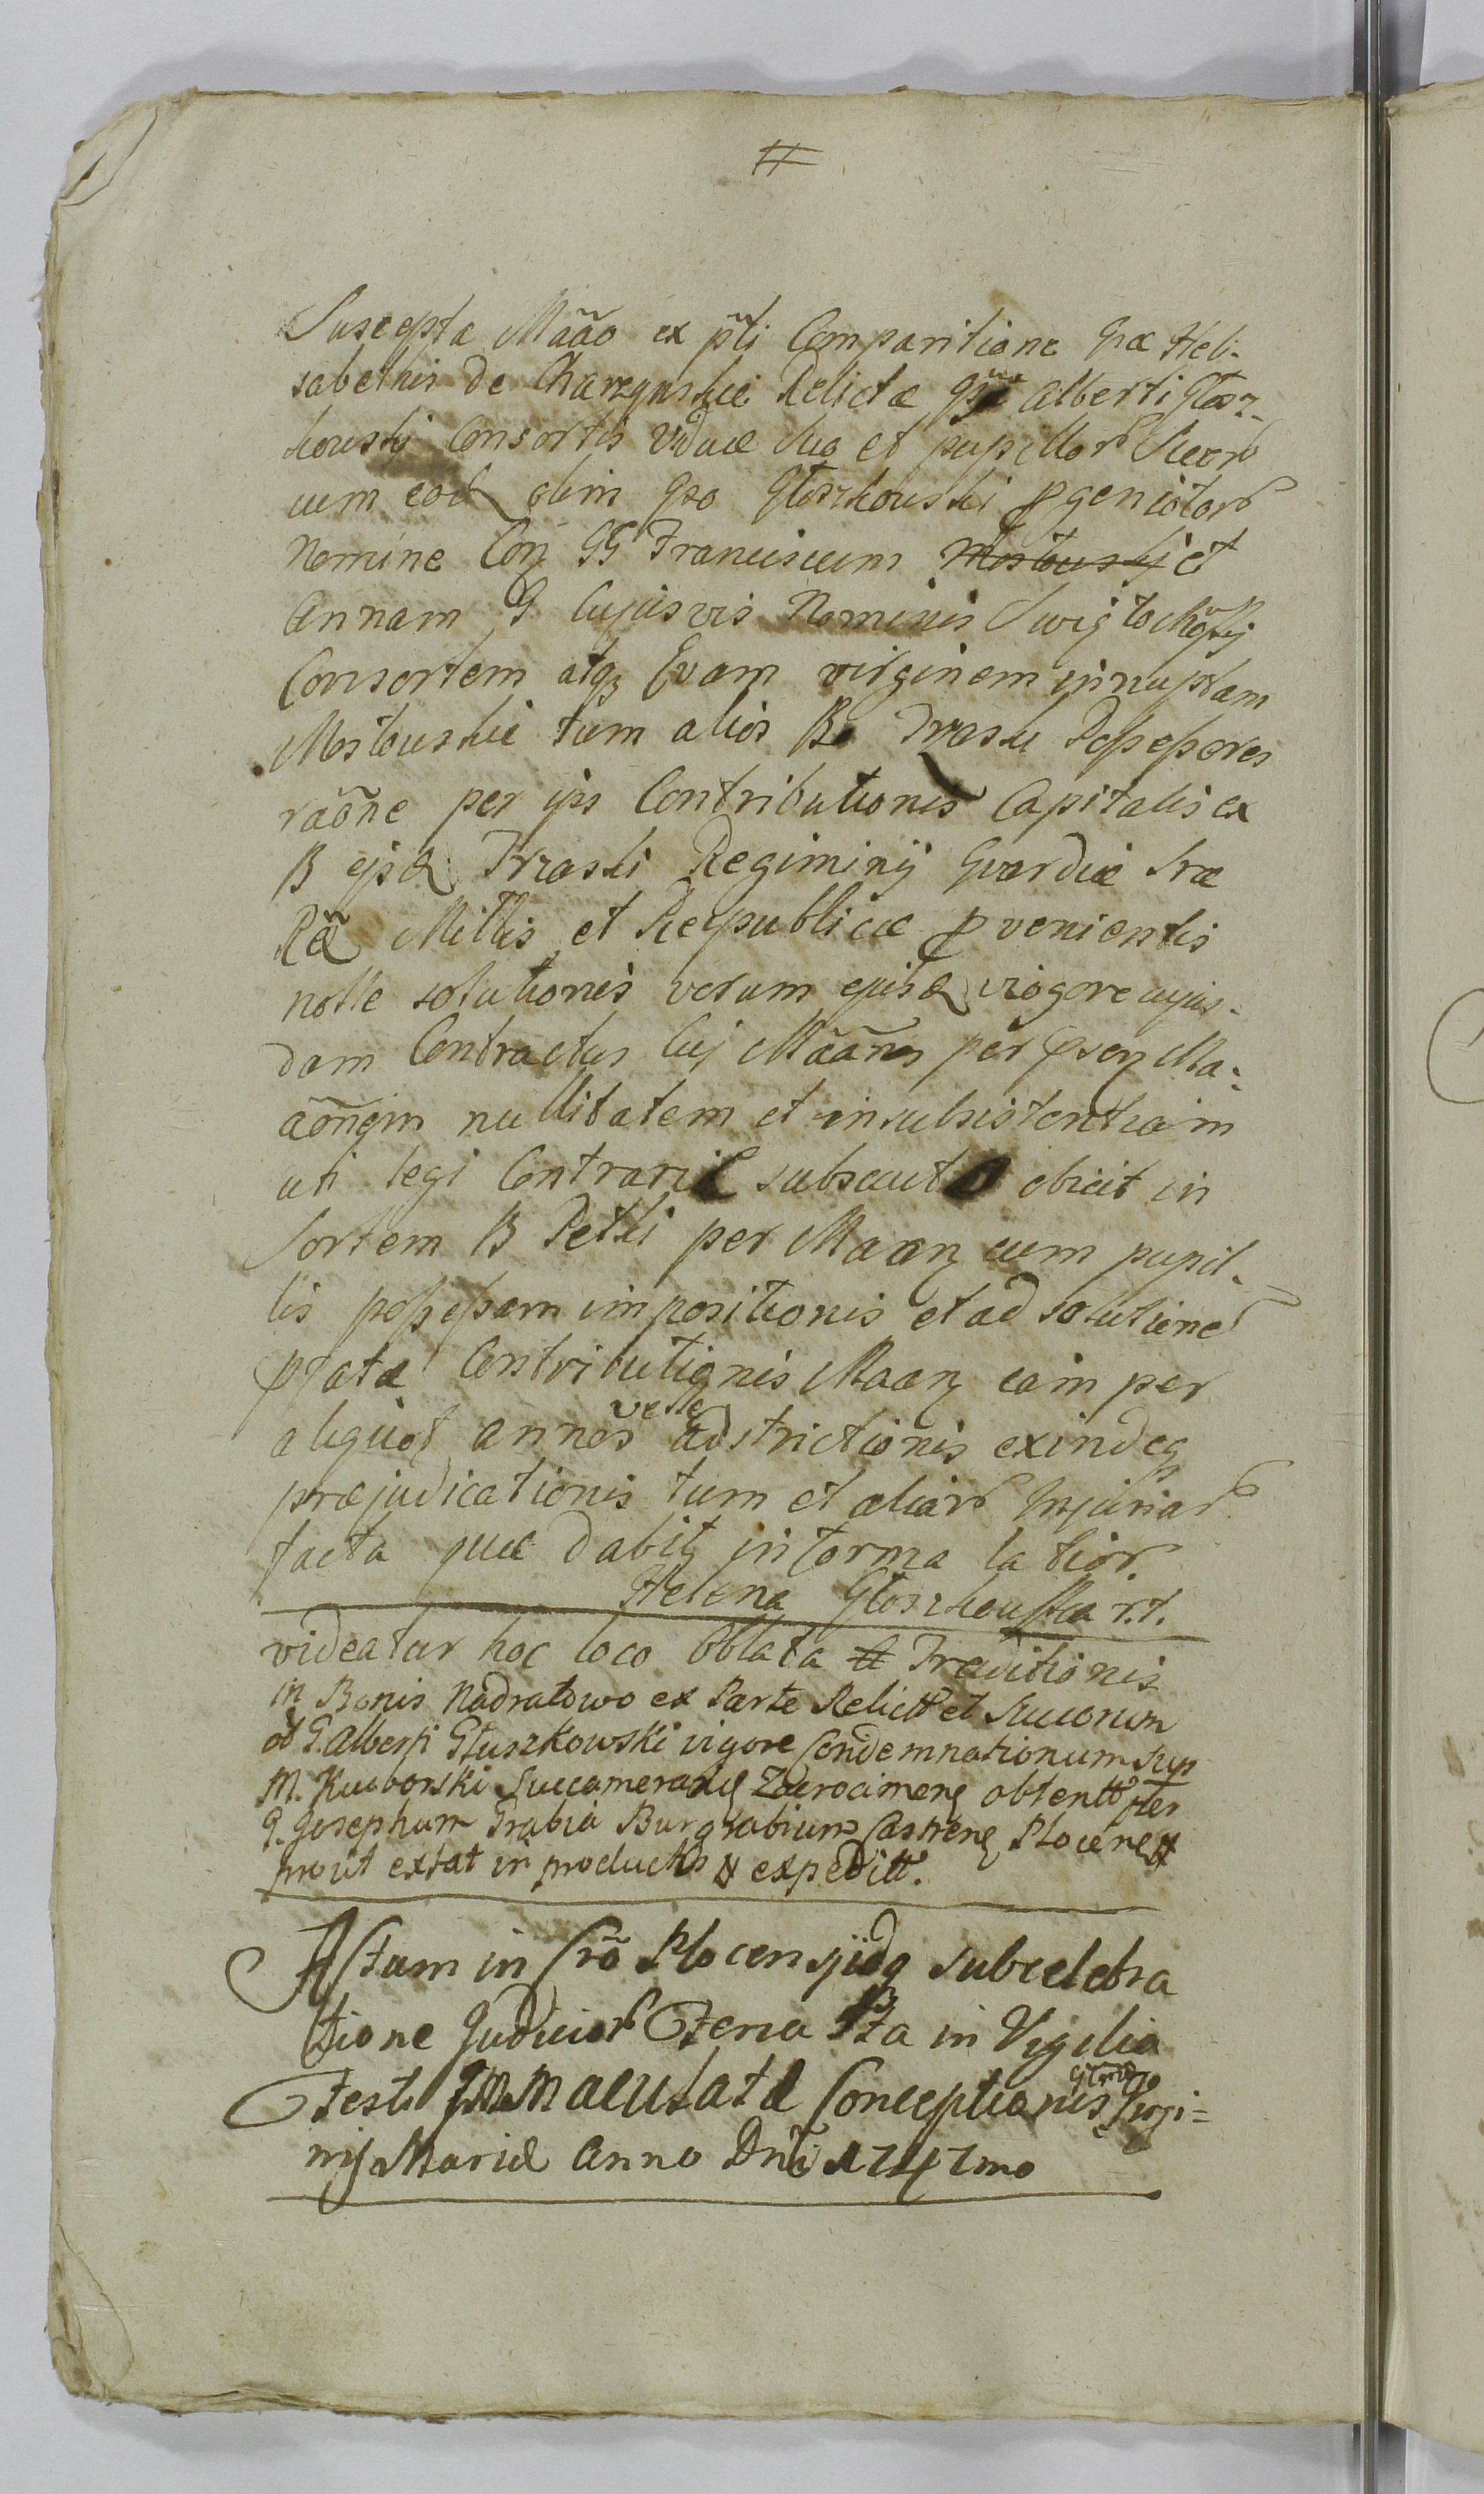 #
Suscepta Mãão ex p̃ti Comparitione Græ Heli-
sabethis de Charzynskie Relictæ Gsi Alberti Głosz-
kowskij Consortis viduæ suo et pupillor Sucor
cum eod olim Gso Głoszkowski pgenitor
Nomine Con GG Franciscum Mostowskij et
Annam G cujusvis Nominis Swięto
Consortem atq Evam virginem innuptam
Mostowskie tum alios B Trzaski Possessores
raõne per ips Contributionis Capitalis ex
B ejsd Trzaski Regiminij Gvardiæ Sræ
Ræ Mittis et Reipublicæ pvenientis
nolle solutionis verum ejusd viogore cujus-
dam Contractus Cuj Mããnis per Ma-
aõnem nullitatem et insubsistentiam
uti legi Contrarie subscripta obicit in
Sortem B Petski per Maan cum pupil-
lis possessam impositionis et ad solutione
pfatæ Contributionis Maan eam per
aliquot annos velle adstrictionis exindeq
præjudicationis tum et aliar Injuriar
facta quæ dabit in forma latior.
Helena Głoszkowska r.t.
videatur hoc loco Oblata tt Traditionis
in Bonis Nadratowo ex Parte Relictæ et Succorum
ol G. Alberti Głuszkowski vigore Condemnationum sup
M. Kuoborski Succamerarij Zacrocimen obtentt per
G. Josephum Grabia Burgrabium Castren Plocen
prout extat in productis expeditt.
Actum in Crõ Plocen ijdq subcelebra
tione Judicior Feria 5ta in Vigilia
Festi Immaculatæ Conceptionis Glmæ Virgi=
nis Mariæ Anno Dni 1747mo